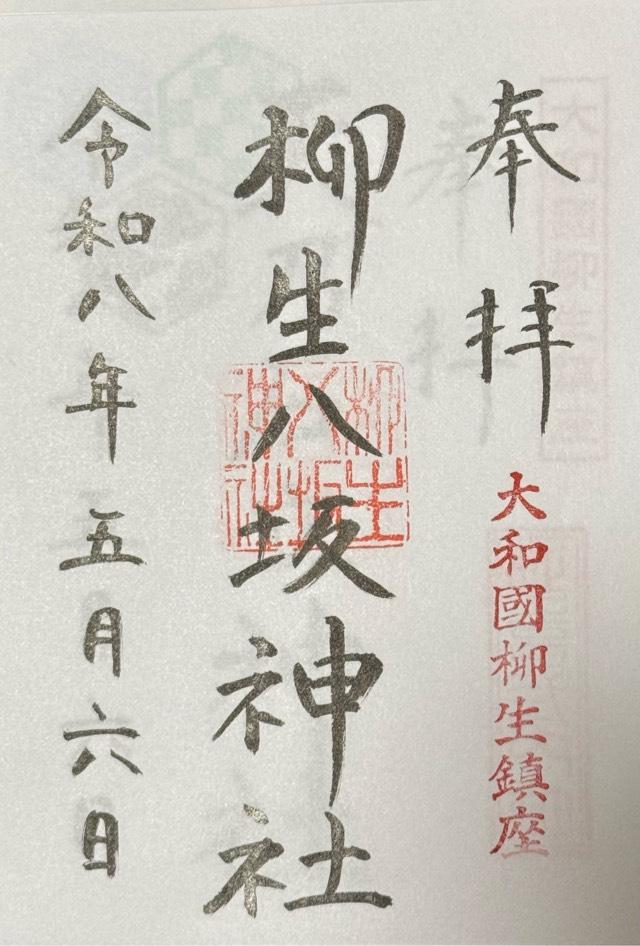 奉拝
大和國柳生鎮座
柳生八坂神社
柳生
八坂
神社
令和八年五月六日